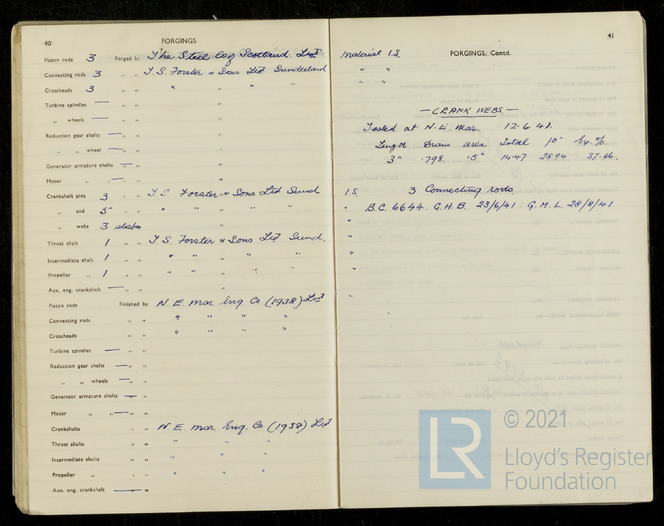 40
FORGINGS
Piston rods 3 Forged by The Steel Coy Scotland Ltd
Connecting rods 3 " " T. S. Forster & Sons Ltd Sunderland
Crossheads 3 " " " " " "
Turbine spindles — " "
" wheels — " "
Reduction gear shafts — " "
" " wheel — " "
Generator armature shafts — " "
Motor " — " "
Crankshaft pins 3 " " T. S. Forster & Sons Ltd Sund
" end 3 " " " " " "
" webs 3 slabs
Thrust shaft 1 " " T. S. Forster & Sons Ltd Sund.
Intermediate shaft 1 " " " " " "
Propeller " 1 " " " " " "
Aux. eng. crankshaft — " "
Piston rods Finished by N. E. Mar Eng Co (1938) Ltd
Connecting rods " " " " " "
Crossheads " " " " " "
Turbine spindles — " "
Reduction gear shafts — " "
" " wheels — " "
Generator armature shafts — " "
Motor " " — " "
Crankshafts " " N. E. Mar. Eng. Co (1938) Ltd
Thrust shafts " " " " "
Intermediate shafts " " " " "
Propeller " " " " " "
Aux. eng. crankshaft — "
41
FORGINGS, Contd.
Material I.S.
" "
" "
— CRANK WEBS —
Tested at N. E. Mar. 12.6.41.
Diam area Total 10"
3" .798 .5" 14.47 28.94 37.66.
I S. 3 Connecting rods
" B.C. 6644. G.H.B. 23/6/41. G.M.L. 28/8/41
"
"
"
"
© 2021
LR
Lloyd's Register
Foundation